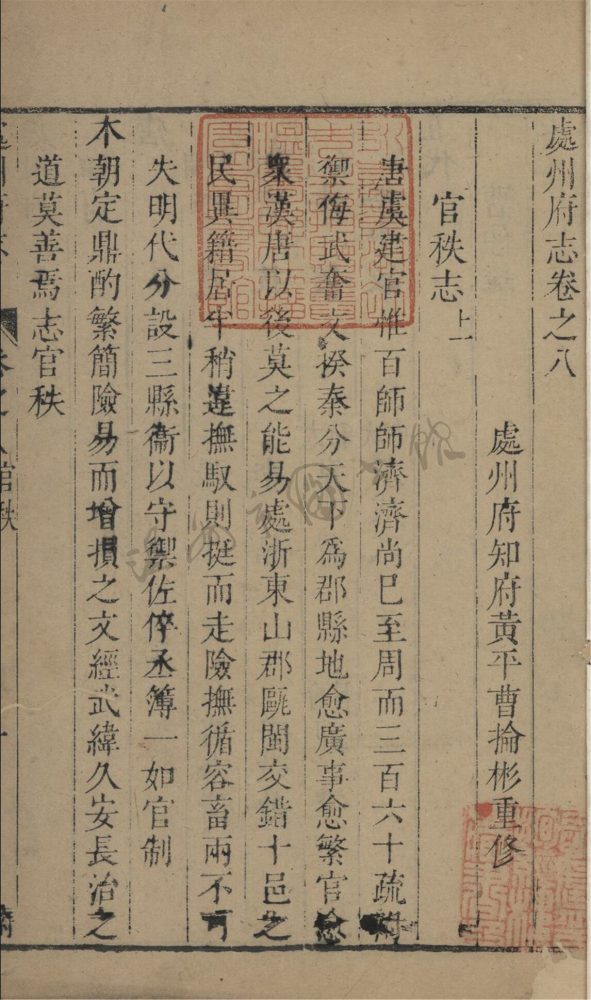 處州府志卷之八
處州府知府黃平曹掄彬重修
官秩志上
唐虞建官惟百師師濟濟尚已至周而三百六十疏附
禦侮武奮文揆秦分天下爲郡縣地愈廣事愈繁官愈
衆漢唐以後莫之能易處浙東山郡甌閩交錯十邑之
民異籍居半稍違撫馭則挺而走險撫循容畜兩不可
失明代分設三縣衞以守禦佐倅丞簿一如官制
本朝定鼎酌繁簡險易而增損之文經武緯久安長治之
道莫善焉志官秩